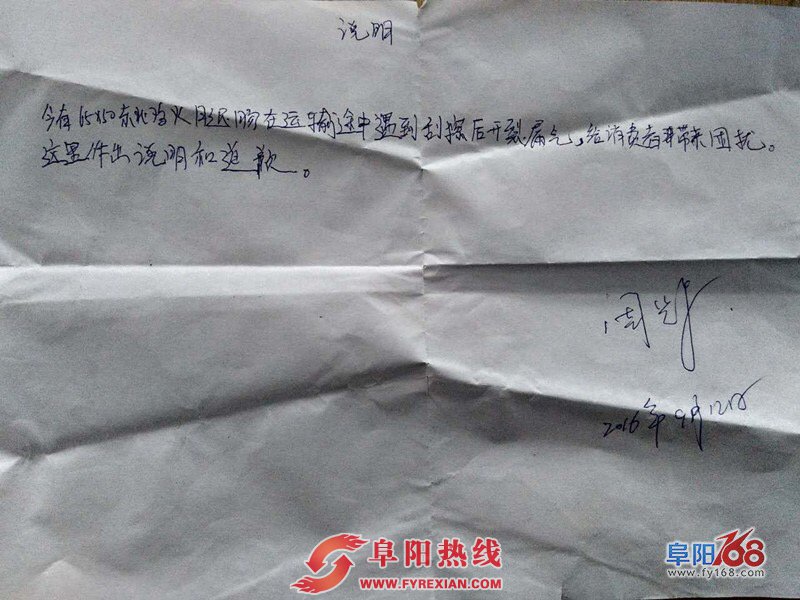 说明
今有 东北 火 肠在运输途中遇到刮擦后开裂漏气，给消费者带来困扰。
这里作出说明和道歉。
周
2016年9月12日
阜阳热线
WWW.FYREXIAN.COM
阜阳168
www.fy168.com